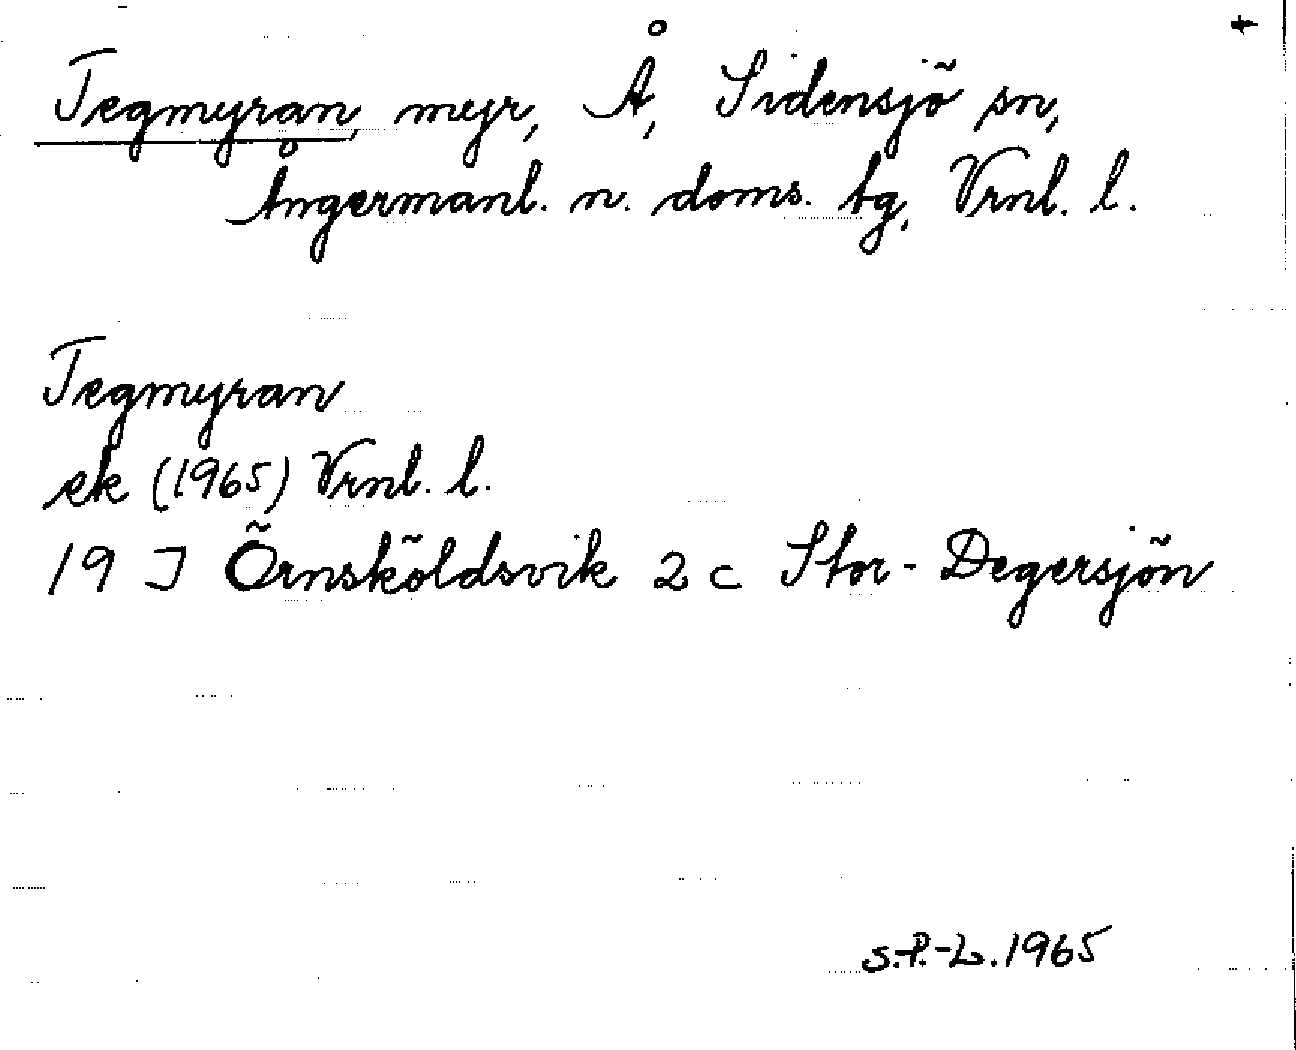 Tegmyran, myr, Å, Sidensjö sn,
Ångermanl. n. doms. tg, Vrnl. l.
Tegmyran
ek (1965) Vrnl. l.
19 J Örnsköldsvik 2 c Stor-Degersjön
S.P.-L. 1965